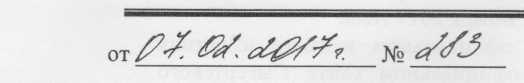 от 07.02.2017г. № 283